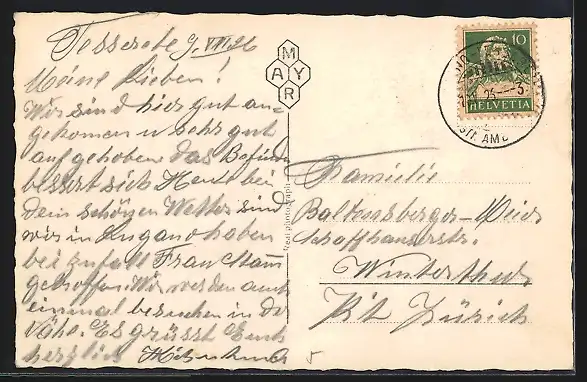 Tesserete 9. VIII 26
Meine Lieben!
Wir sind hier gut an-
gekommen u sehr gut
aufgehoben das Befinden
bessert sich Heute bei
dem schönen Wetter sind
wir in Lugano haben
bei zufall Frau Stam
getroffen Wir werden auch
einmal besuchen in der
Nähe. Es grüsst Euch
herzlich
MAYR
Real photograph
10
HELVETIA
AMB
Familie
Baltensberger-Meier
Schaffhauserstr.
Winterthur
Kt. Zürich